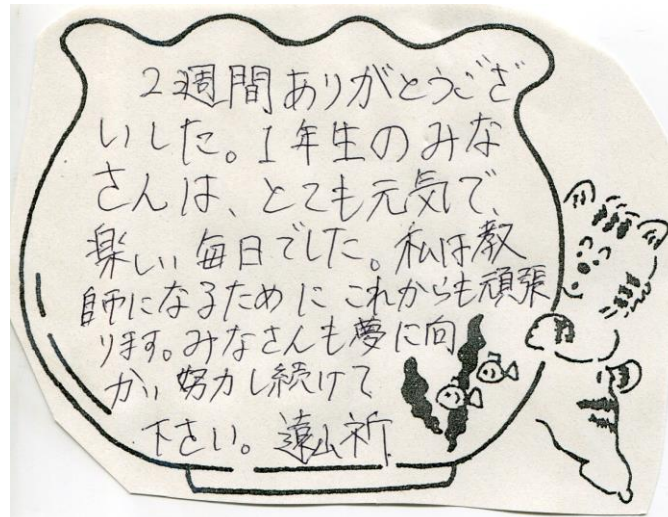 2週間ありがとうござ
いした。1年生のみな
さんは、とても元気で、
楽しい毎日でした。私は教
師になるために これからも頑張
ります。みなさんも夢に向
かい努力し続けて
下さい。 遠山祈